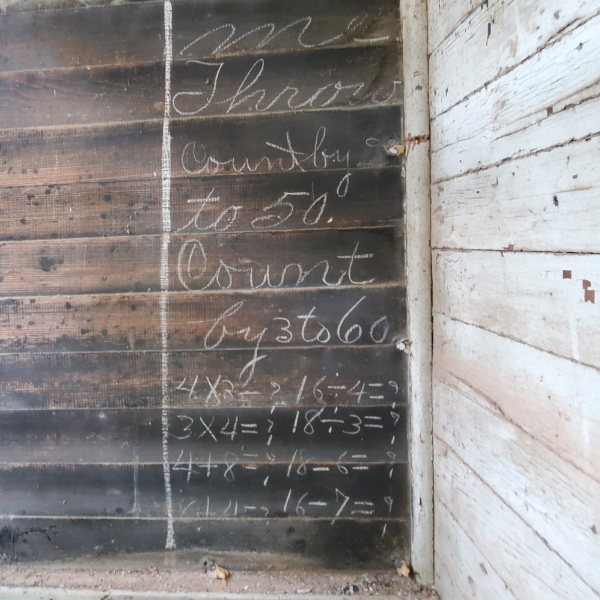 me
Throw
Count by 2
to 50.
Count
by 3 to 60
4×3=? 16÷4=?
3×4=? 18÷3=?
4+8=? 18-6=?
8+4=? 16-7=?